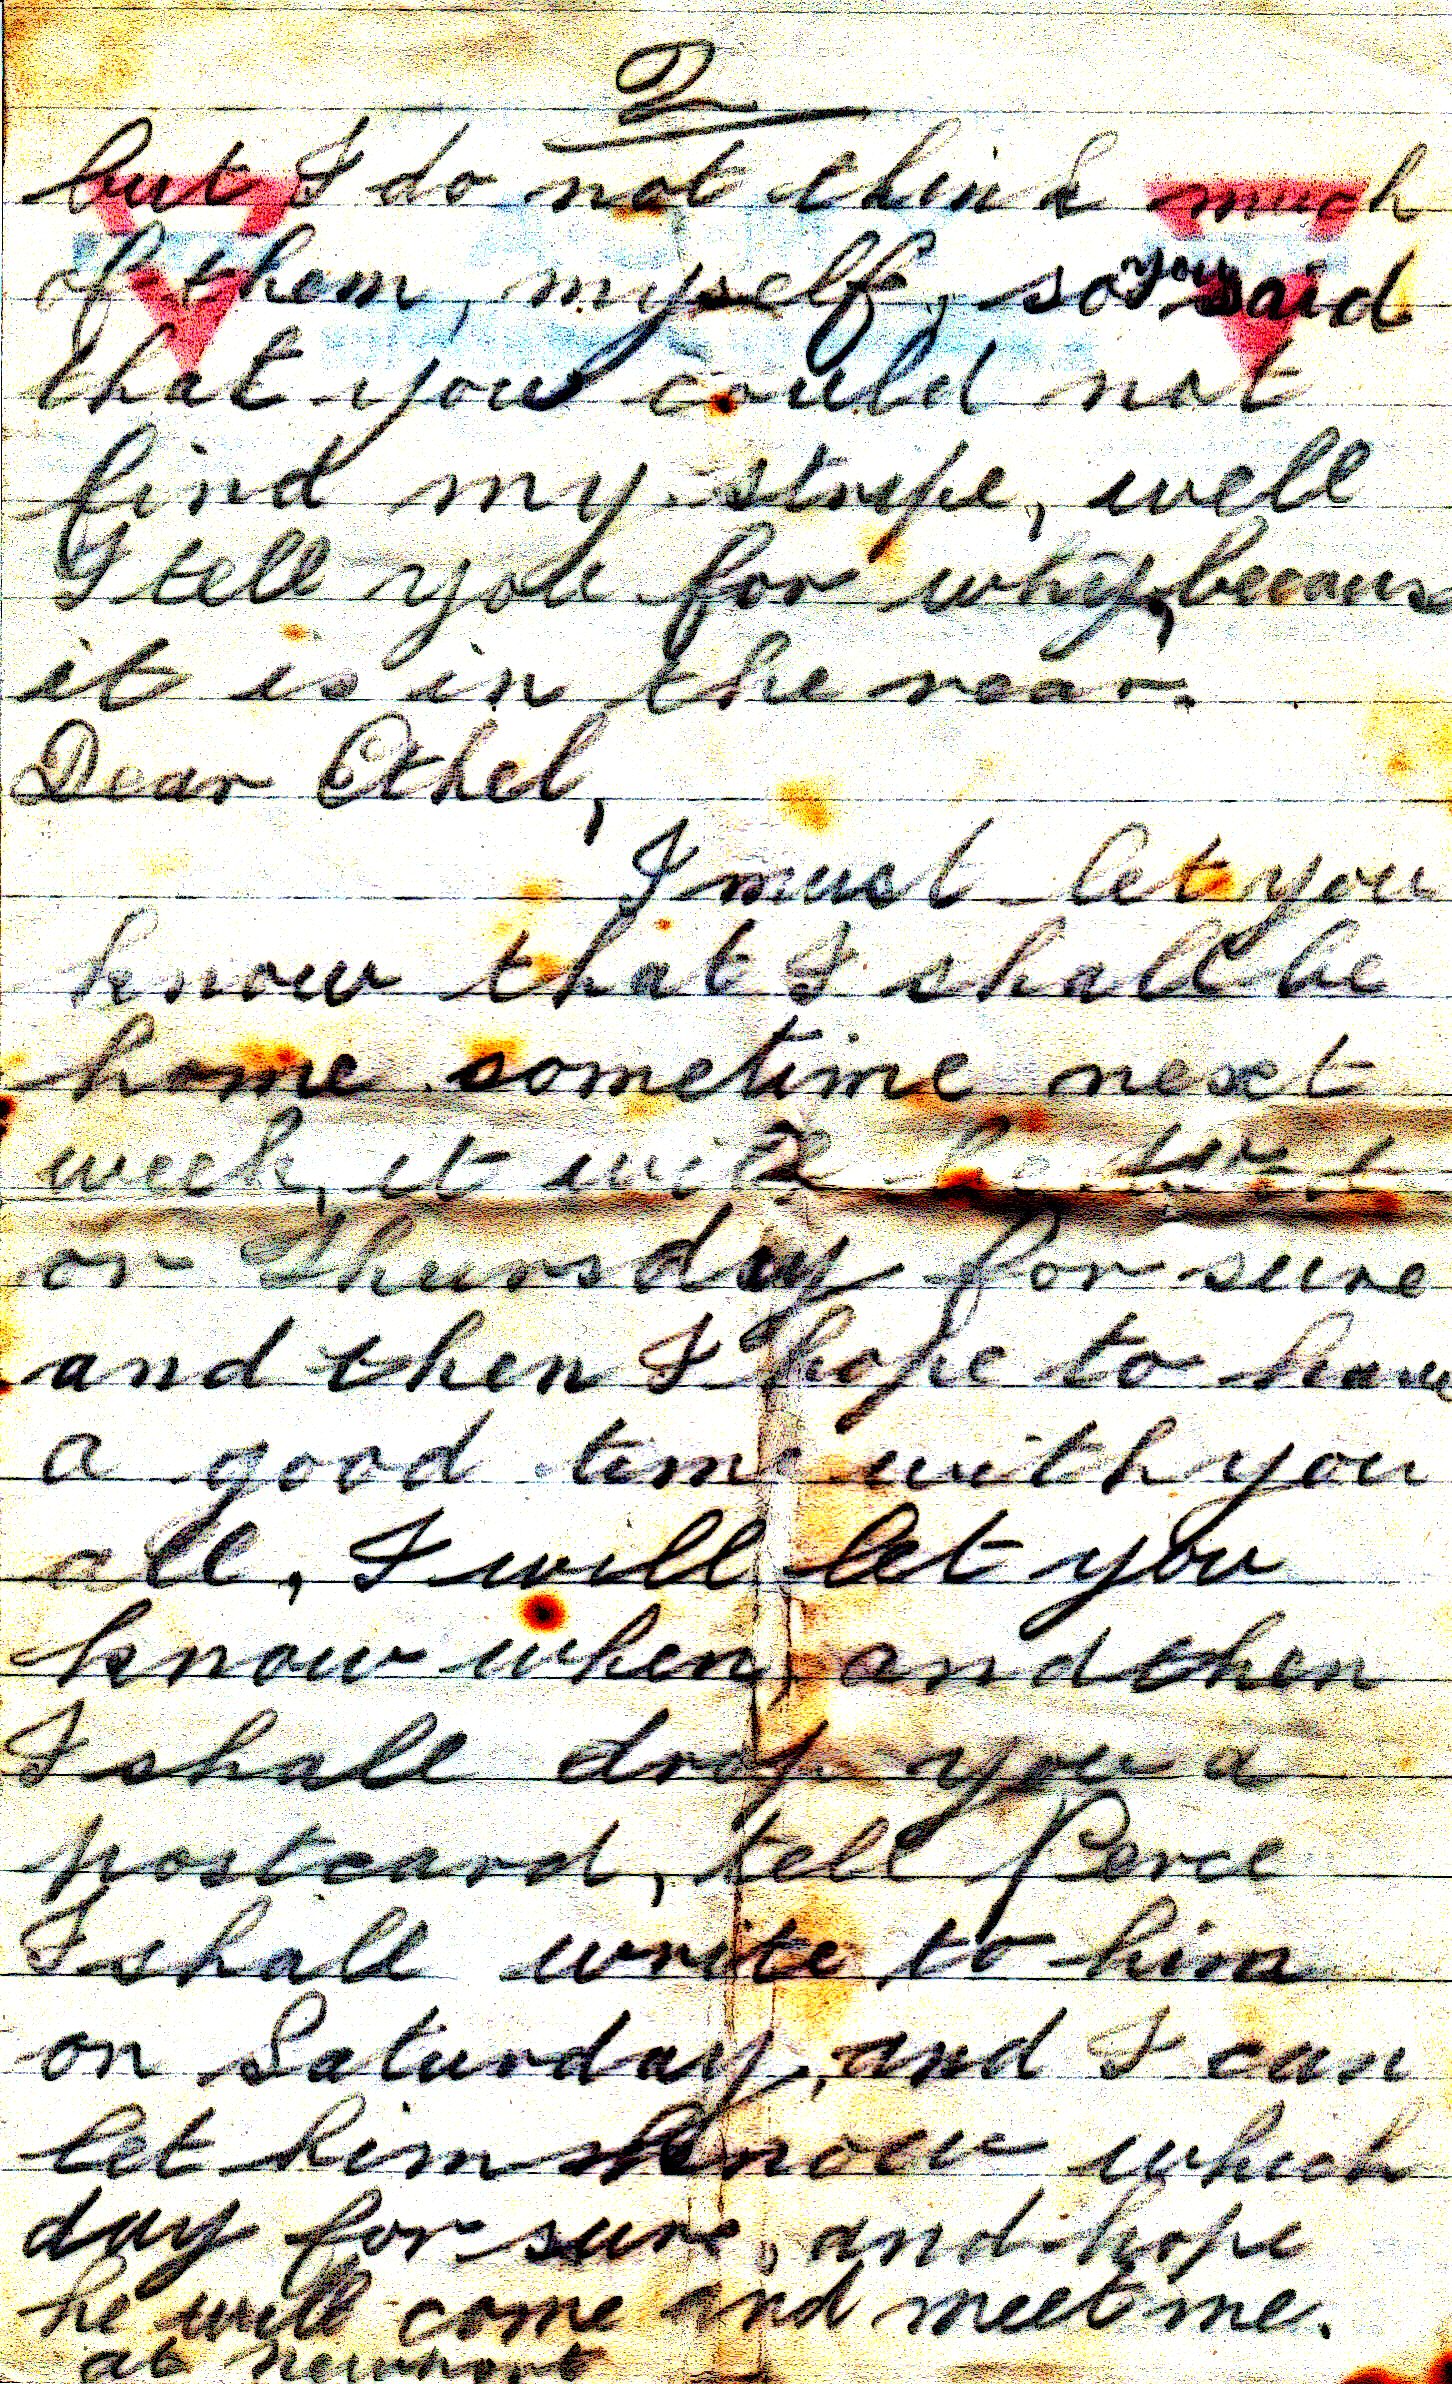 2
but I do not think much
of them, myself, so you said
that you could not
find my stripe, well
I tell you for why, becaus
it is in the rear.
Dear Ethel,
I must let you
know that I shall be
home sometime next
week, it will be
or Thursday for sure
and then I hope to have
a good time with you
all, I will let you
know when, and then
I shall drop you a
postcard, tell Perce
I shall write to him
on Saturday, and I can
let him know which
day for sure, and hope
he will come and meet me.
at Newport